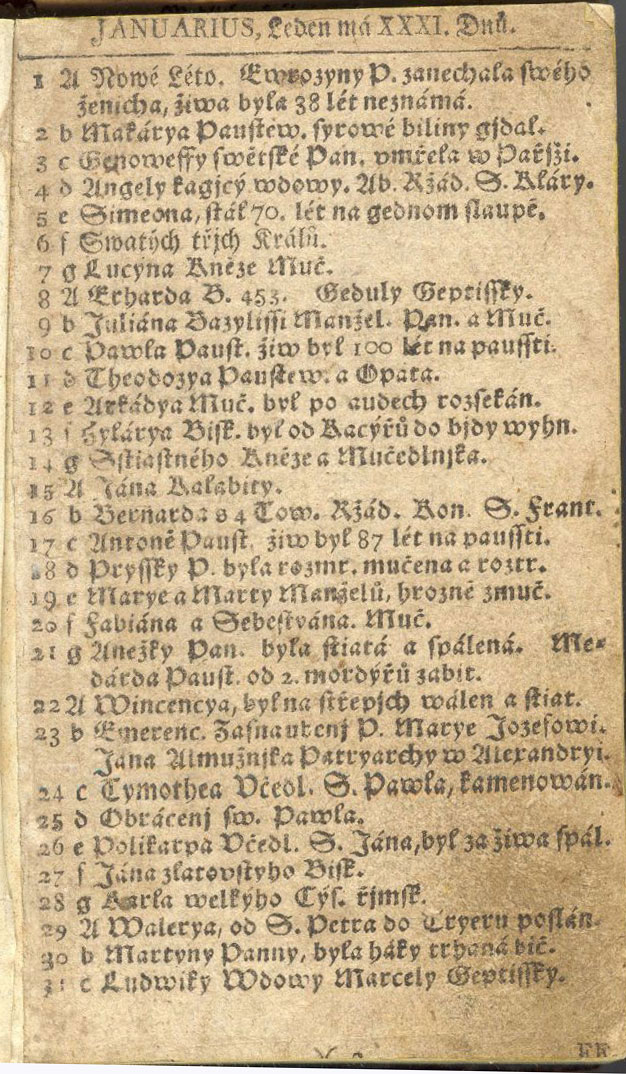 JANUARIUS, Leden má XXXI. Dnů.
1 A Nowé Léto. Ewrozyny P. zanechala swého
ženicha, žiwa byla 38 lét neznámá.
2 b Makárya Paustew. syrowé biliny gjdal.
3 c Genoweffy swětské Pan. vmřela w Pařjži.
4 d Angely kagjcý wdowy. Ab. Ržád. S. Kláry.
5 e Simeona, stál 70. lét na gednom slaupě.
6 f Swatých třjch Králů.
7 g Lucyna Kněze Muč.
8 A Erharda B. 453. Geduly Geptissky.
9 b Juliána Bazylissi Manžel. Pan. a Muč.
10 c Pawla Paust. žiw byl 100 lét na paussti.
11 d Theodozya Paustew. a Opata.
12 e Arkádya Muč. byl po audech rozsekán.
13 f Hylárya Bisk. byl od Kacýřů do bjdy wyhn.
14 g Sstiastného Kněze a Mučedlnjka.
15 A Jána Kalabity.
16 b Bernarda s 4 Tow. Ržád. Kon. S. Frant.
17 c Antoně Paust. žiw byl 87 lét na paussti.
18 d Pryssky P. byla rozmt. mučena a roztr.
19 e Marye a Marty Manželů, hrozně zmuč.
20 f Fabiána a Sebestyána. Muč.
21 g Anežky Pan. byla stiatá a spálená. Me-
dárda Paust. od 2. mordýřů zabit.
22 A Wincencya, byl na střepjch wálen a stiat.
23 b Emerenc. Zasnaubenj P. Marye Jozefowi.
Jána Almužnjka Patryarchy w Alexandryi.
24 c Tymothea Včedl. S. Pawla, kamenowán.
25 d Obrácenj sw. Pawla.
26 e Polikarpa Včedl. S. Jána, byl za žiwa spál.
27 f Jána zlatovstýho Bisk.
28 g Karla welkýho Cýs. řjmsk.
29 A Walerya, od S. Petra do Tryeru poslán
30 b Martyny Panny, byla háky trhaná bič.
31 c Ludwiky Wdowy Marcely Geptissky.